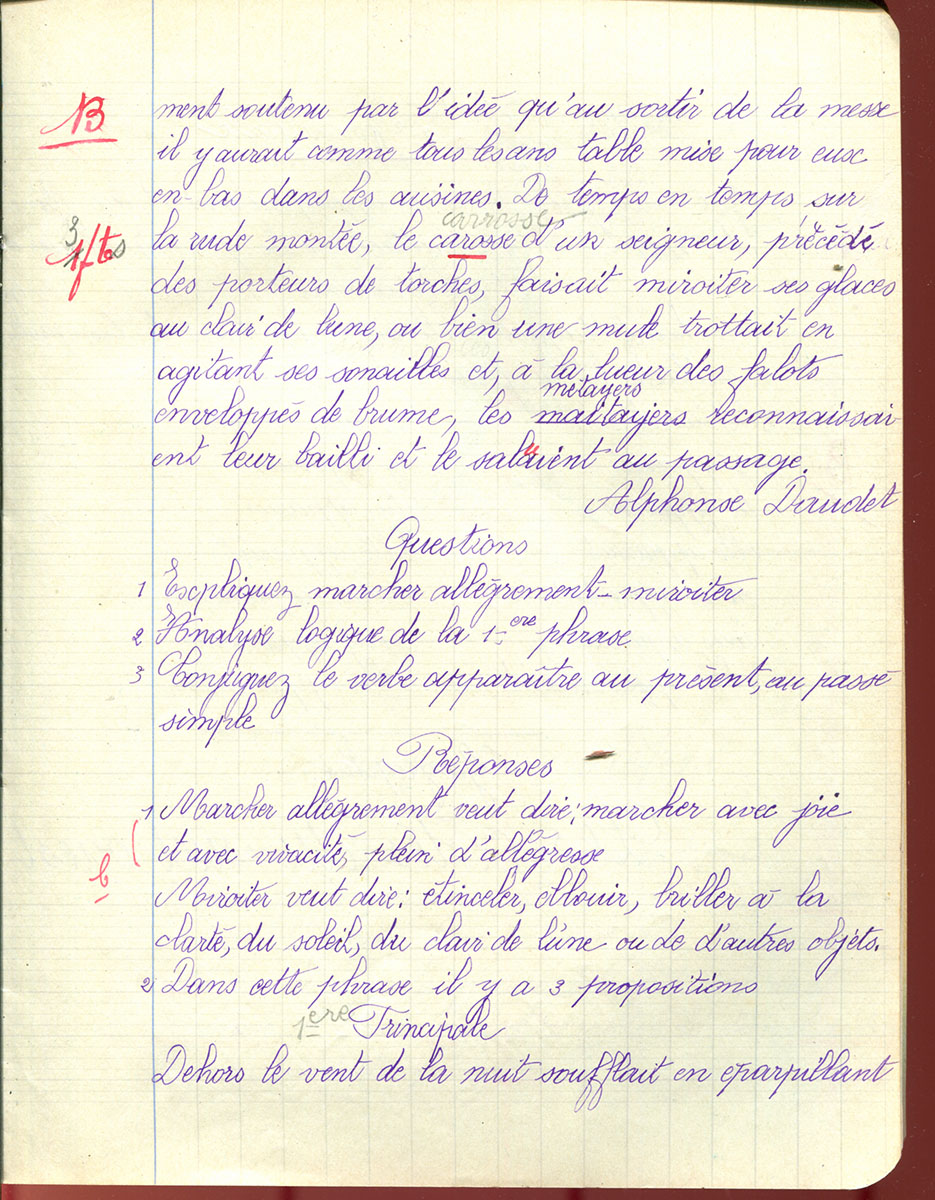 B
ment soutenu par l'idée qu'au sortir de la messe
il y aurait comme tous les ans table mise pour eux
en-bas dans les cuisines. De temps en temps sur
carrosse
la rude montée, le carosse d'un seigneur, précédé
3 1 ftes
des porteurs de torches, faisait miroiter ses glaces
au clair de lune, ou bien une mule trottait en
agitant ses sonailles et, à la lueur des falots
métayers
enveloppés de brume, les maitayers reconnaissai-
ent leur bailli et le saluaient au passage.
Alphonse Daudet
Questions
1 Expliquez marcher allègrement - miroiter
2 Analyse logique de la 1ere phrase.
3 Conjuguez le verbe apparaître au présent, au passé
simple
Réponses
1 Marcher allègrement veut dire: marcher avec joie
et avec vivacité, plein d'allégresse
b
Miroiter veut dire: étinceler, éblouir, briller à la
clarté, du soleil, du clair de lune ou de d'autres objets.
2 Dans cette phrase il y a 3 propositions
1ere Principale
Dehors le vent de la nuit soufflait en éparpillant